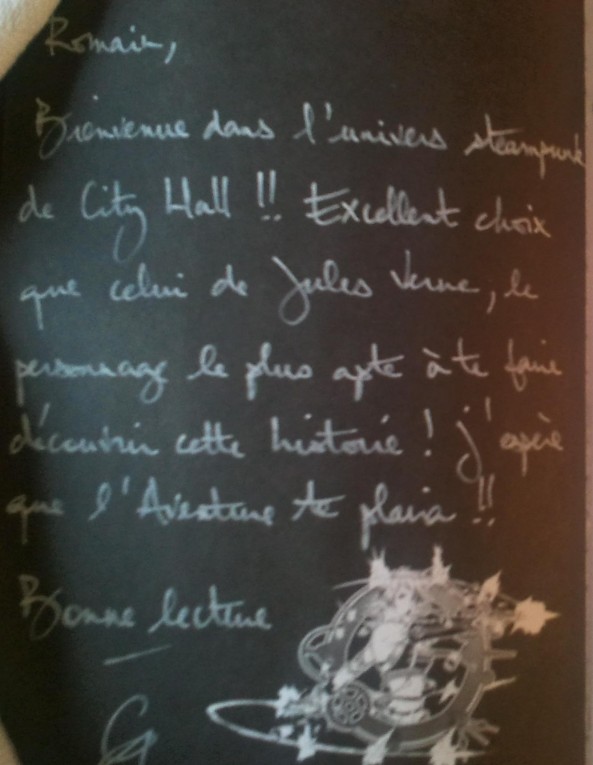 Romain,
Bienvenue dans l'univers steampunk
de City Hall !! Excellent choix
que celui de Jules Verne, le
personnage le plus apte à te faire
découvrir cette histoire ! j'espère
que l'Aventure te plaira !!
Bonne lecture